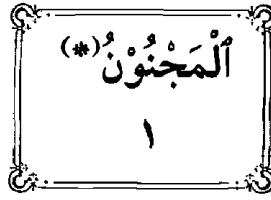 ٱلْمَجْنُوْنُ(*)
١